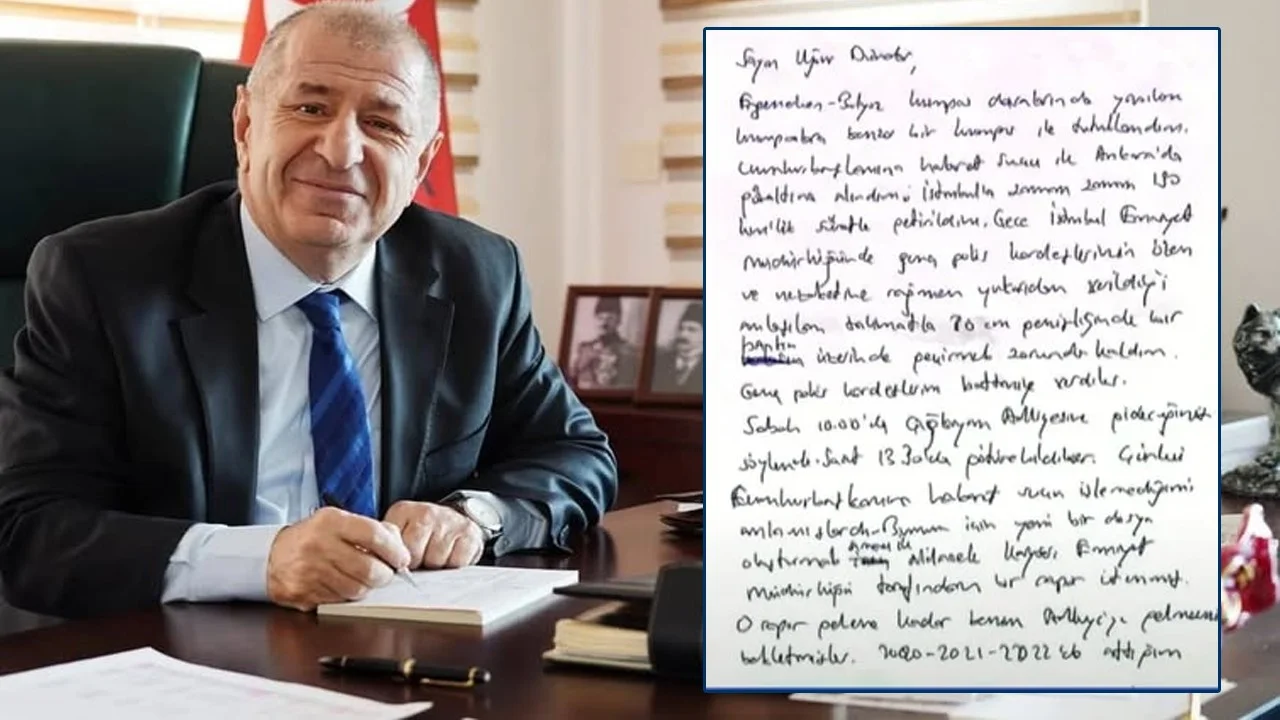 Sayın Uğur Dündar,
Ergenekon-Balyoz kumpas davalarında yapılan
kumpaslara benzer bir kumpas ile tutuklandım.
Cumhurbaşkanına hakaret suçu ile Ankara'da
gözaltına alındım. İstanbul'a zaman zaman 190
km'lik süratle getirildim. Gece İstanbul Emniyet
Müdürlüğünde genç polis kardeşlerimin özen
ve nezaketine rağmen yukarıdan verildiği
anlaşılan talimatla 70 cm genişliğinde bir
bankın üzerinde geçirmek zorunda kaldım.
Genç polis kardeşlerim battaniye verdiler.
Sabah 10.00'da Çağlayan Adliyesine gideceğimiz
söylendi. Saat 13.30'da götürebildiler. Çünkü
Cumhurbaşkanına hakaret suçu işlemediğimi
anlamışlardı. Bunun için yeni bir dosya
oluşturmak Kayseri Emniyet
Müdürlüğü tarafından bir rapor istenmiş.
O rapor gelene kadar benim Adliye'ye gelmemi
bekletmişler. 2020-2021-2022 attığım